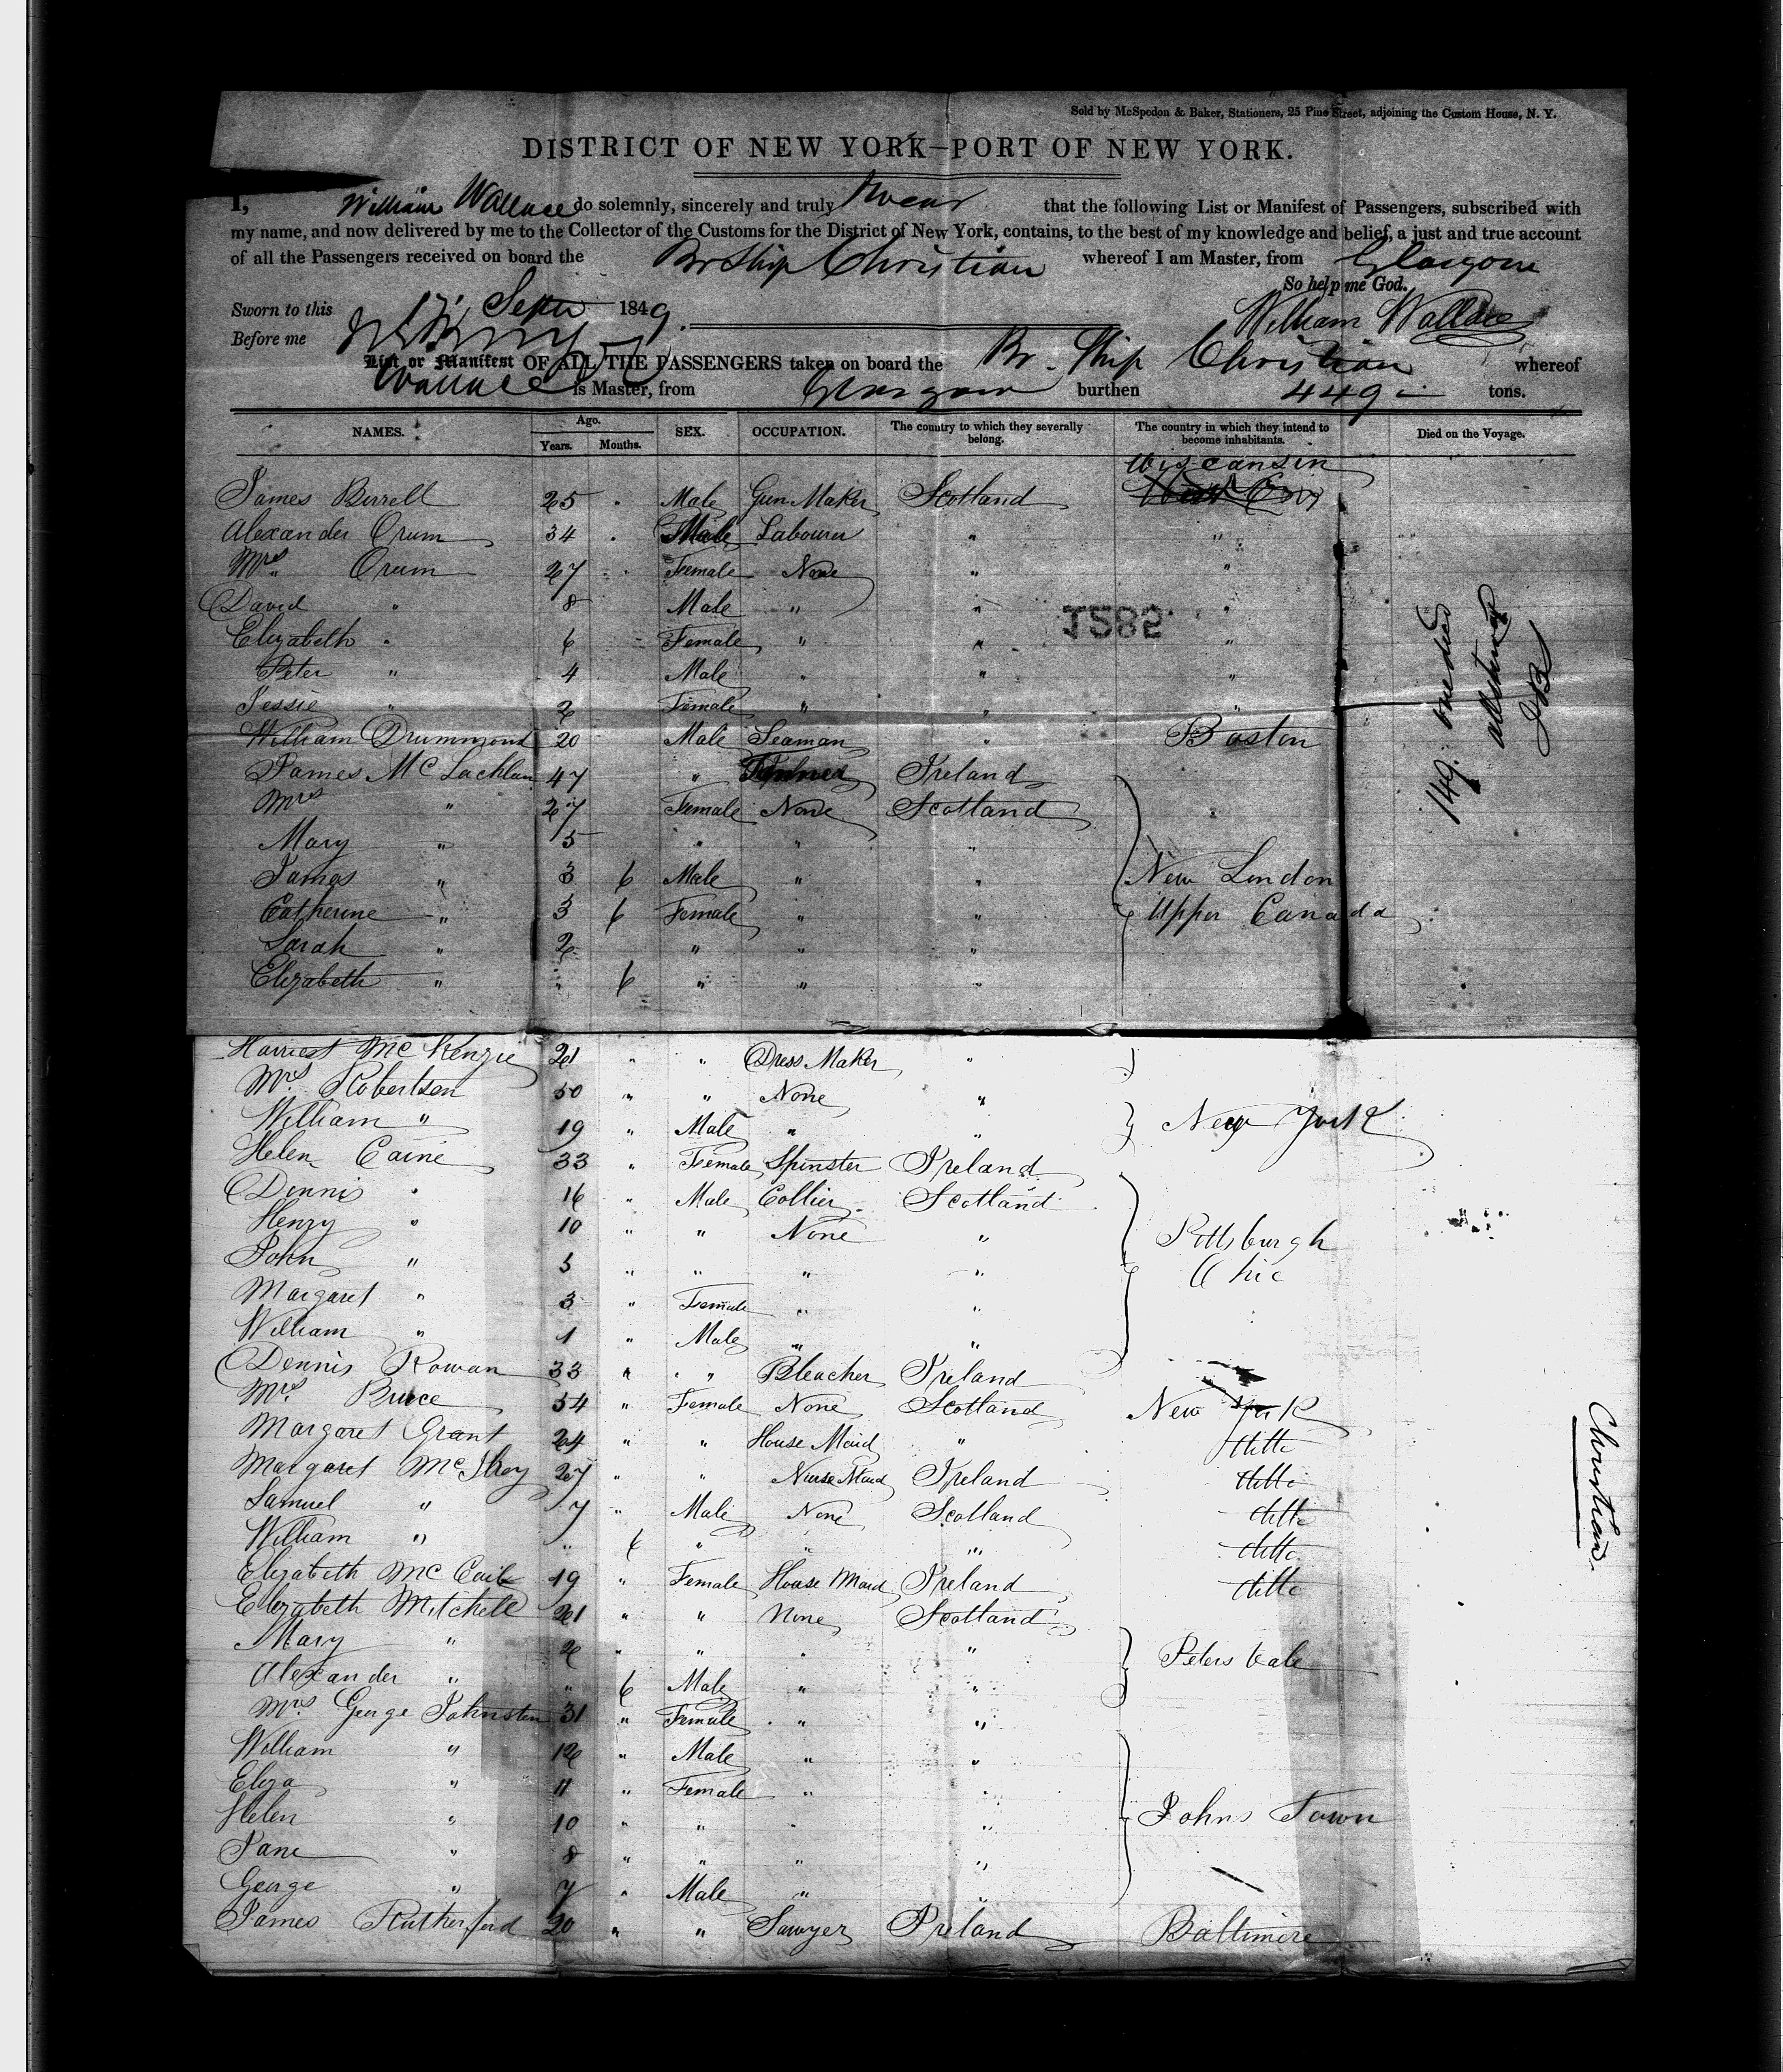 Sold by McSpedon & Baker, Stationers, 25 Pine Street, adjoining the Custom House, N. Y.
DISTRICT OF NEW YORK—PORT OF NEW YORK.
I, William Wallace do solemnly, sincerely and truly swear that the following List or Manifest of Passengers, subscribed with
my name, and now delivered by me to the Collector of the Customs for the District of New York, contains, to the best of my knowledge and belief, a just and true account
of all the Passengers received on board the Br Ship Christian whereof I am Master, from Glasgow
So help me God.
Sworn to this 17 Septr 1849.
William Wallace
Before me
List or Manifest OF ALL THE PASSENGERS taken on board the Br. Ship Christian whereof
Wallace is Master, from Glasgow burthen 449 tons.
NAMES. Age. Years. Months. SEX. OCCUPATION. The country to which they severally belong. The country in which they intend to become inhabitants. Died on the Voyage.
Wisconsin
James Birrell 25 " Male Gun Maker Scotland
Alexander Orum 34 " Male Labourer " "
Mrs Orum 27 " Female None " "
David " 8 Male " " "
Elizabeth " 6 Female " " "
Peter " 4 Male " " "
Jessie " 2 Female " " "
William Drummond 20 Male Seaman " Boston
James McLachlan 47 " Ireland
Mrs " 27 Female None Scotland
Mary " 5 " " "
James " 3 6 Male " " New London
Catherine " 3 6 Female " " Upper Canada
Sarah " 2 " " "
Elizabeth " " 6 " " "
Harriest McKenzie 21 " " Dress Maker "
Mrs Robertson 50 " " None "
William " 19 " Male " " New York
Helen Caine 33 " Female Spinster Ireland
Dennis " 16 " Male Collier Scotland
Henry " 10 " " None " Pittsburgh
John " 5 " " " " Ohio
Margaret " 3 " Female " "
William " 1 " Male " "
Dennis Rowan 33 " " Bleacher Ireland
Mrs Bruce 54 " Female None Scotland New York
Margaret Grant 24 " " House Maid " ditto
Margaret McIlroy 27 " " Nurse Maid Ireland ditto
Samuel " 7 " Male None Scotland ditto
William " " 6 " " " ditto
Elizabeth McCaile 19 " Female House Maid Ireland ditto
Elizabeth Mitchell 21 " " None Scotland
Mary " 2 " " " " Peters
Alexander " " 6 Male " "
Mrs George Johnston 31 " Female " "
William " 12 " Male " "
Eliza " 11 " Female " "
Helen " 10 " " " " Johns Town
Jane " 8 " " " "
George " 7 " Male " "
James Rutherford 20 " " Sawyer Ireland Baltimore
1285
149. one died
Christian